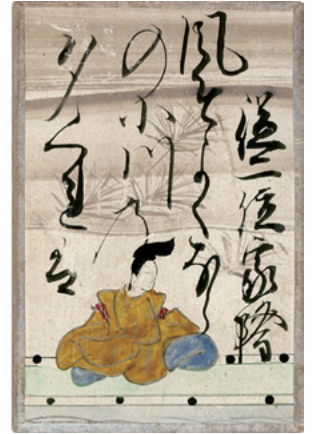 從二位家隆
風そよくなら
の小川の
夕くれは